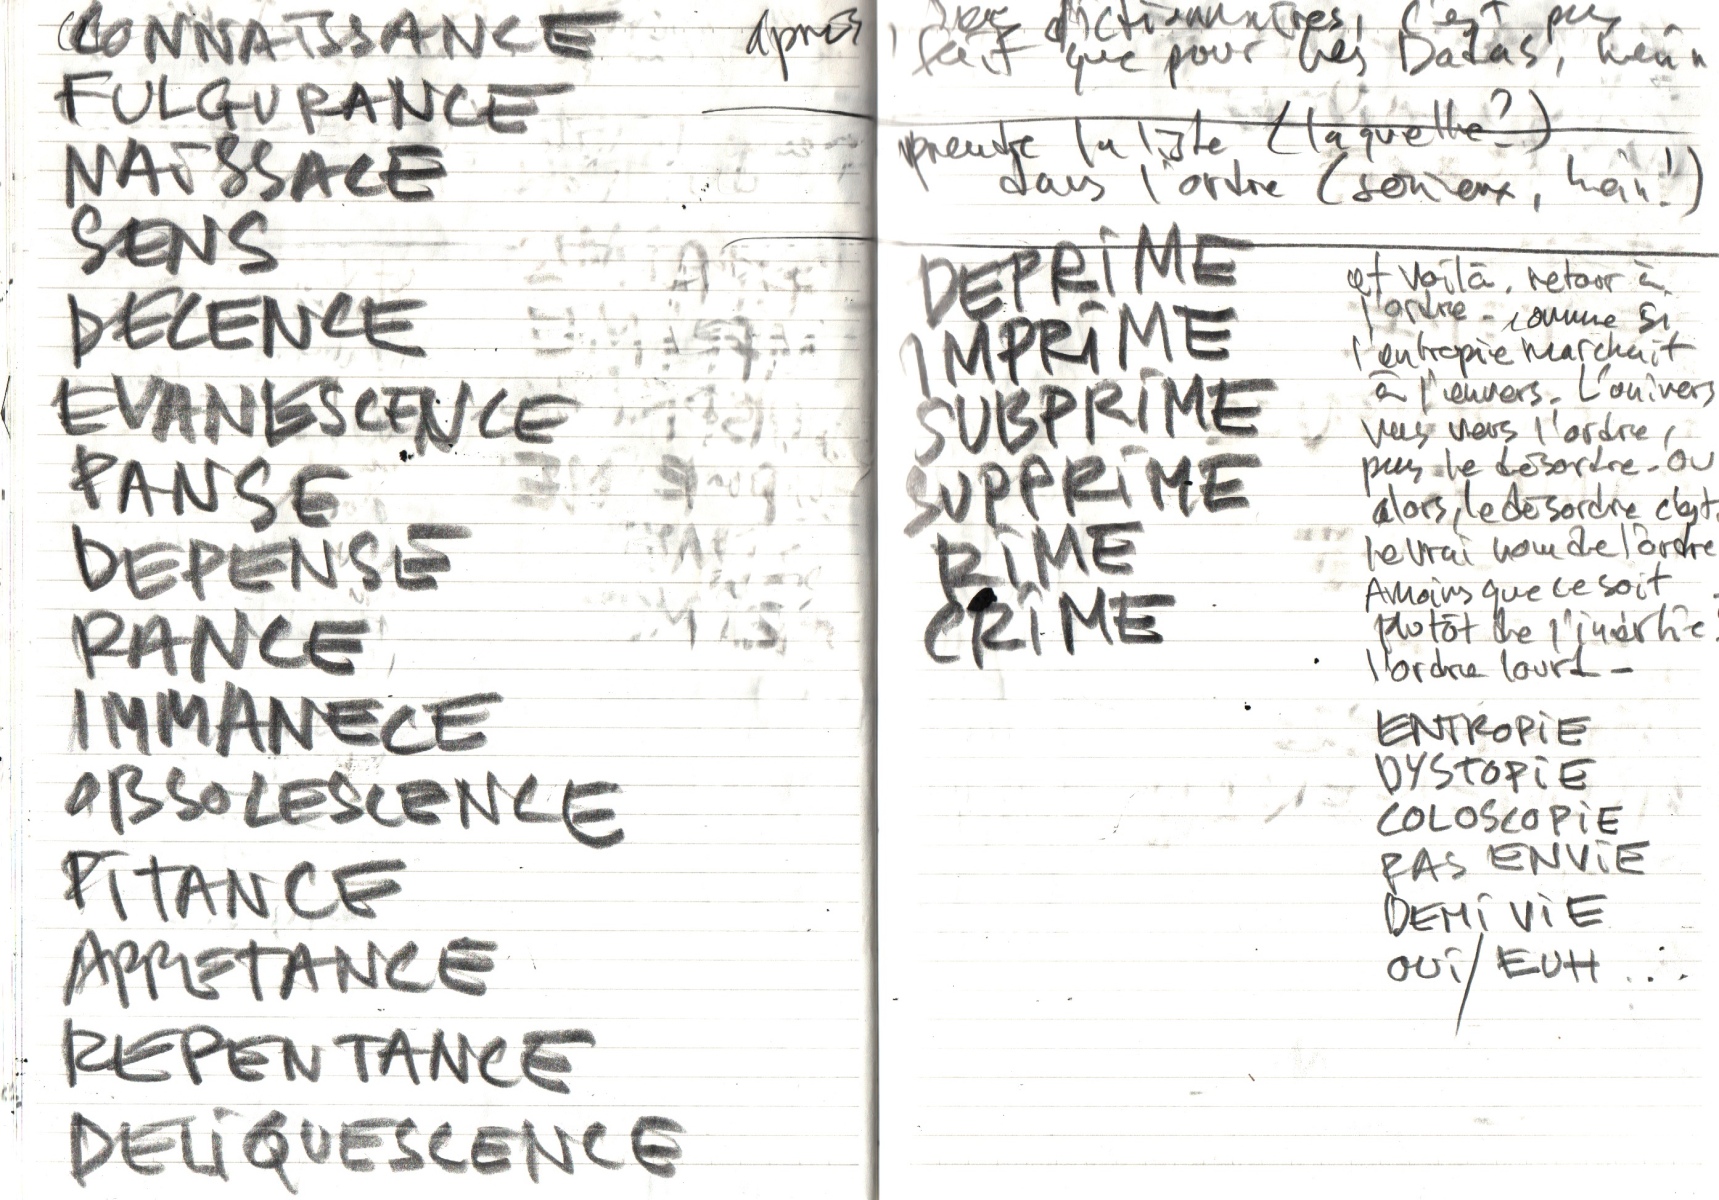 CONNAISSANCE
FULGURANCE
NAISSACE
SENS
DECENCE
EVANESCENCE
PANSE
DEPENSE
RANCE
IMMANECE
OBSOLESCENCE
PITANCE
APPRETANCE
REPENTANCE
DELIQUESCENCE
après
dictionnaires, c'est pas
fait que pour les Dadas, hein
prendre la liste (laquelle?)
dans l'ordre (sérieux, hein!)
DEPRIME
IMPRIME
SUBPRIME
SUPPRIME
RIME
CRIME
et voilà. retour à
l'ordre - comme si
l'entropie marchait
à l'envers. L'univers
vers l'ordre,
pas le désordre - ou
alors, le désordre c'est
le vrai nom de l'ordre
A moins que ce soit
plutôt de l'inertie.
l'ordre lourd -
ENTROPIE
DYSTOPIE
COLOSCOPIE
PAS ENVIE
DEMI VIE
OUI/EUH ...